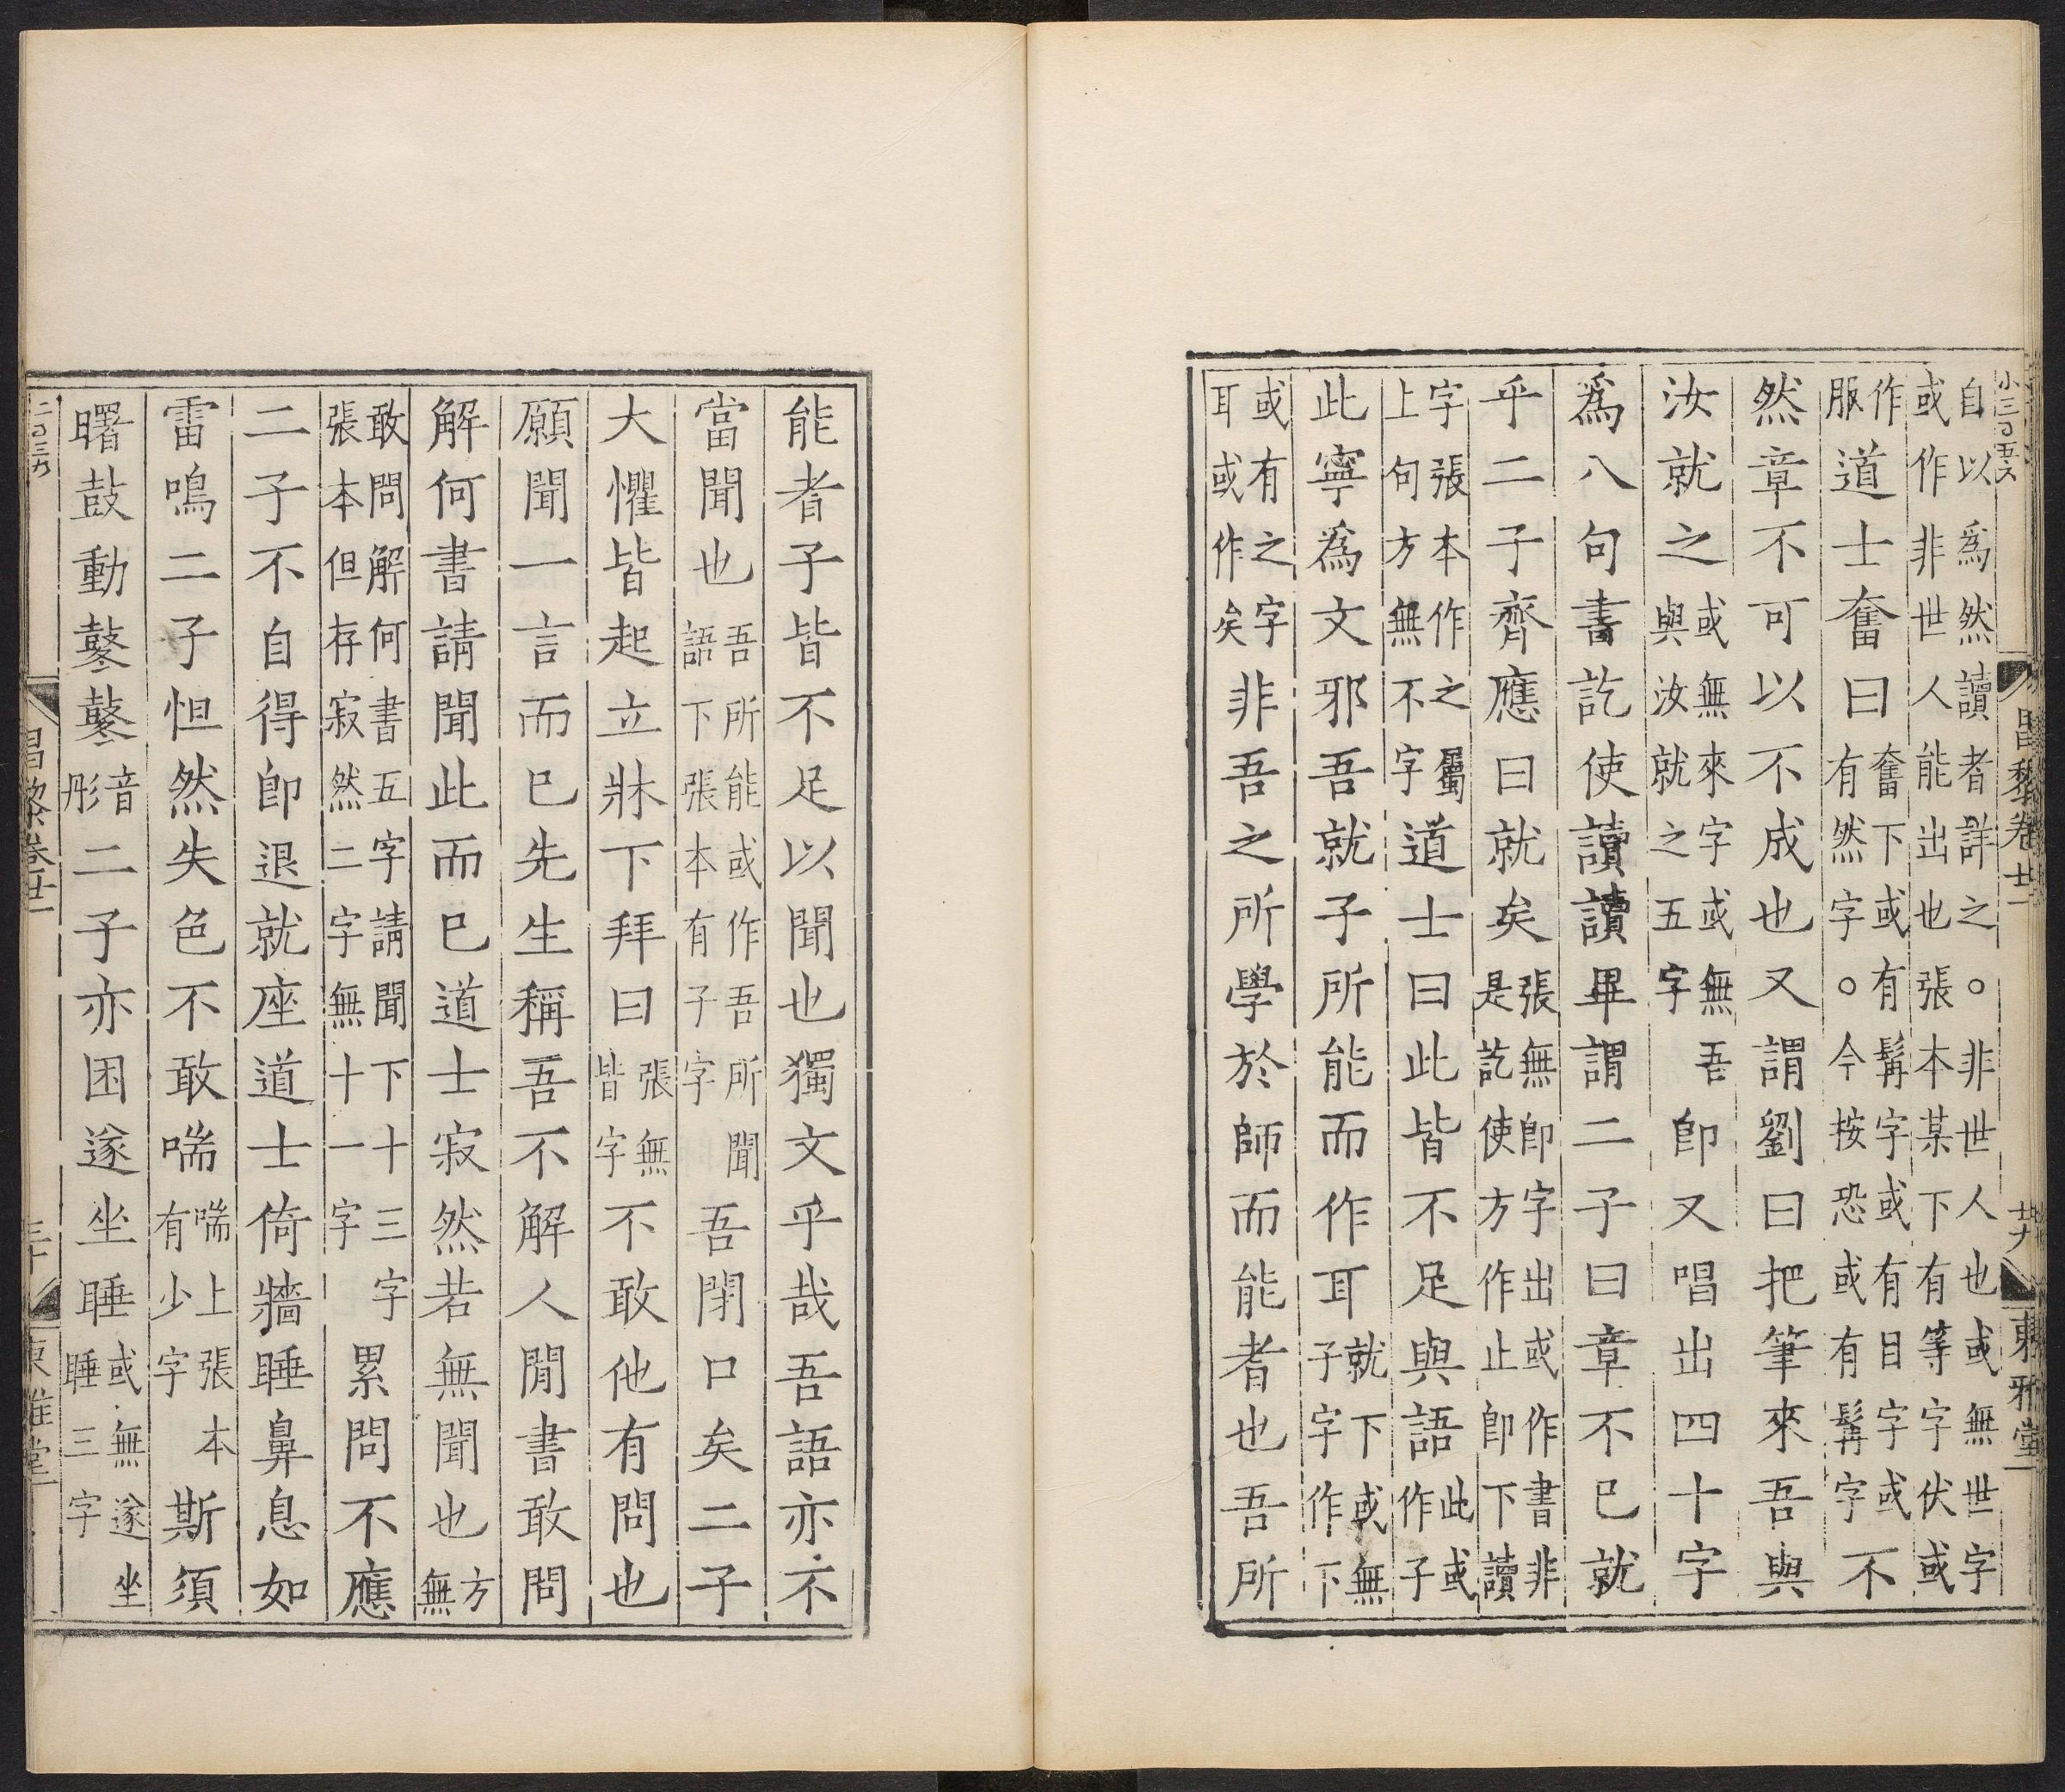 小三百五六
昌黎卷廿一
廿九
東雅堂
自以爲然讀者詳之。非世人也或無世字
或作非世人能出也張本某下有等字伏或
作服道士奮曰奮下或有髯字或有目字或有然字。今按恐或有髯字不
然章不可以不成也又謂劉曰把筆來吾與
汝就之或無來字或無吾與汝就之五字即又唱出四十字
爲八句書訖使讀讀畢謂二子曰章不已就
乎二子齊應曰就矣張無即字出或作書非是訖使方作止即下讀
字張本作之屬上句方無不字道士曰此皆不足與語此或作子
此寧爲文邪吾就子所能而作耳就下或無子字作下
或有之字耳或作矣非吾之所學於師而能者也吾所
能者子皆不足以聞也獨文乎哉吾語亦不
當聞也吾所能或作吾所聞語下張本有子字吾閉口矣二子
大懼皆起立牀下拜曰張無皆字不敢他有問也
願聞一言而已先生稱吾不解人間書敢問
解何書請聞此而已道士寂然若無聞也方無
敢問解何書五字請聞下十三字張本但存寂然二字無十一字累問不應
二子不自得即退就座道士倚牆睡鼻息如
雷鳴二子怛然失色不敢喘喘上張本有少字斯須
曙鼓動鼕鼕音彤二子亦困遂坐睡或無遂坐睡三字
昌黎卷廿一
三十
東雅堂